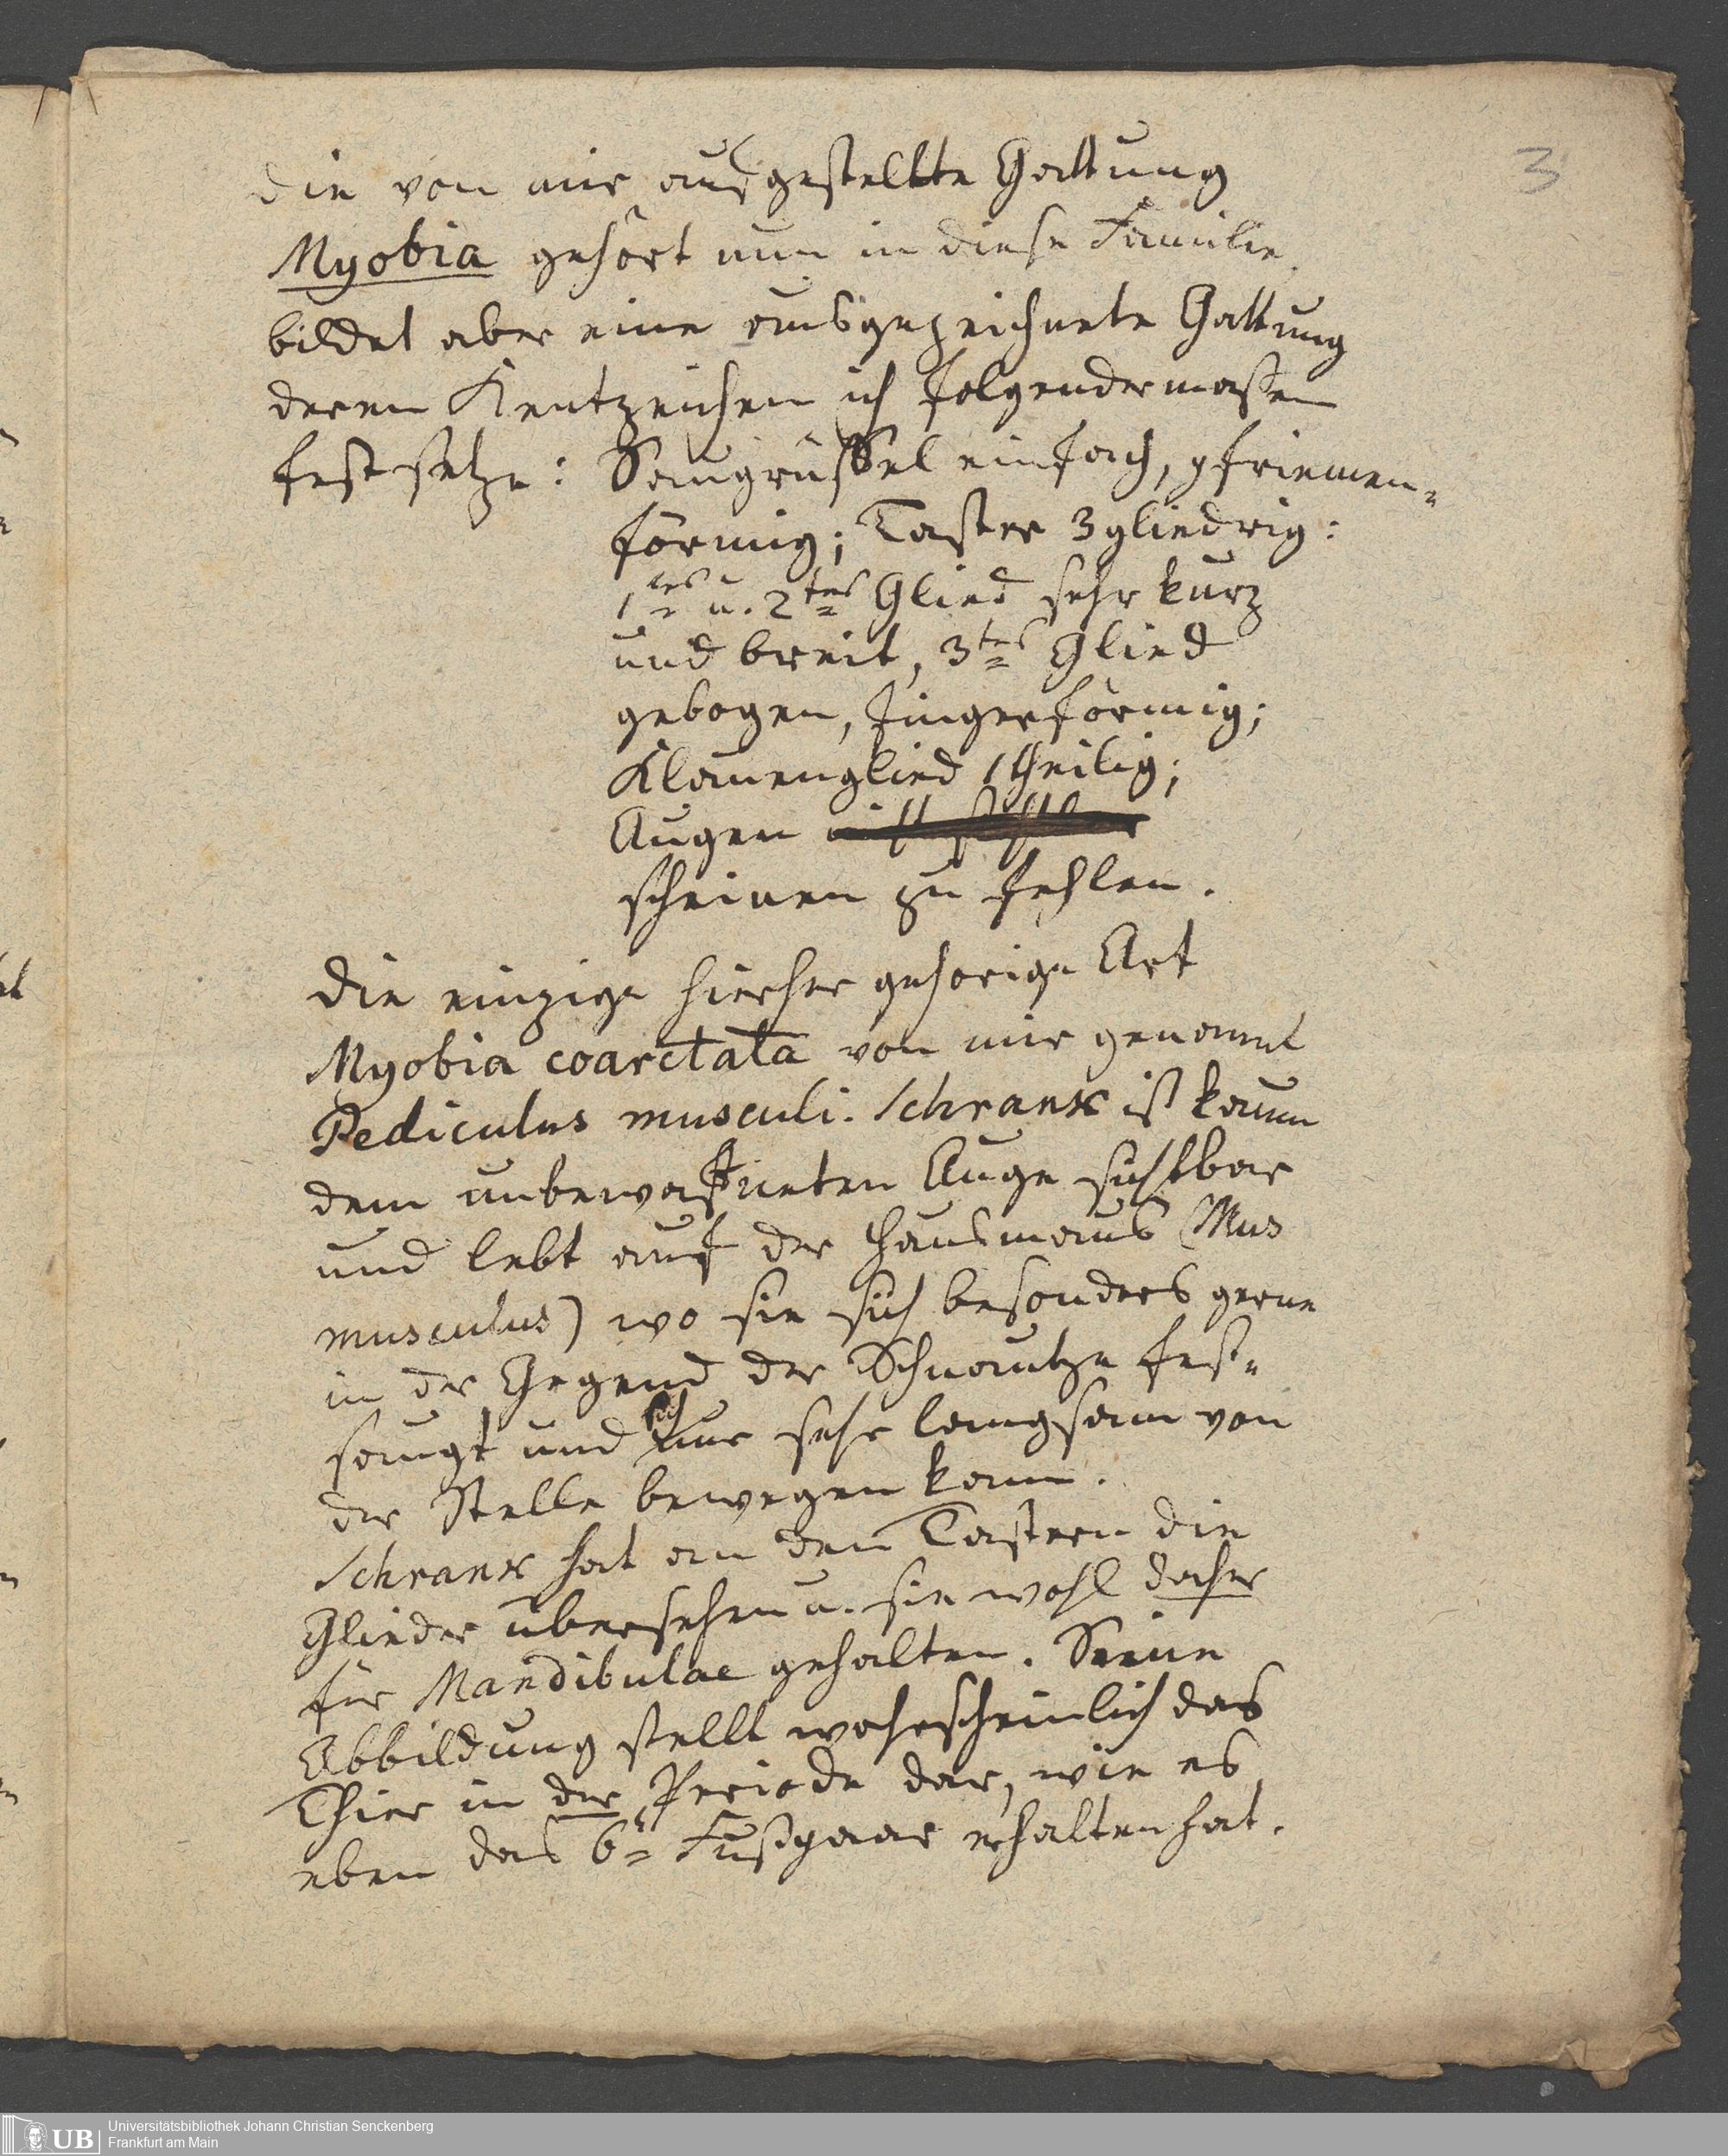 3
die von mir aufgestellte Gattung
Myobia gehört nun in diese Familie,
bildet aber eine ausgezeichnete Gattung
deren Kentzeichen ich folgendermassen
fest setze: Saugrüssel einfach, pfriemen=
förmig; Taster 3gliedrig:
1tes u. 2tes Glied sehr kurz
und breit, 3tes Glied
gebogen, fingerförmig;
Klauenglied 1theilig;
Augen nicht sichtbar
scheinen zu fehlen.
Die einzige hierher gehorige Art
Myobia coarctata von mir genannt
Pediculus musculi. Schrank ist kaum
dem unbewaffneten Auge sichtbar
und lebt auf der Hausmaus (Mus
musculus) wo sie sich besonders gerne
in der Gegend der Schnautze fest=
saugt und sich nur sehr langsam von
der Stelle bewegen kann.
Schrank hat an den Tastern die
Glieder übersehen u. sie wohl daher
für Mandibulae gehalten. Seine
Abbildung stellt wahrscheinlich das
Thier in der Periode dar, wie es
eben das 6te Fußpaar erhalten hat.
UB
Universitätsbibliothek Johann Christian Senckenberg
Frankfurt am Main